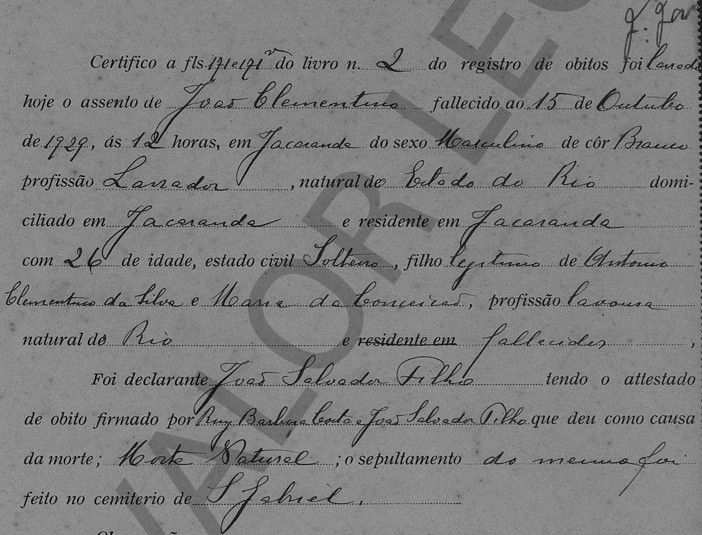 Certifico a fls 171 e 171v do livro n. 2 do registro de obitos foi lavrado
hoje o assento de João Clementino fallecido ao 15 de Outubro
de 1929, ás 12 horas, em Jacaranda do sexo Masculino de côr Branco
profissão Lavrador, natural do Estado do Rio domi-
ciliado em Jacaranda e residente em Jacaranda
com 26 de idade, estado civil Solteiro, filho legitimo de Antonio
Clementino da Silva e Maria da Conceicão, profissão lavoura
natural do Rio e residente em fallecidos,
Foi declarante João Salvador Filho tendo o attestado
de obito firmado por Ruy Barbosa Couto e João Salvador Filho que deu como causa
da morte; Morte Natural; o sepultamento do mesmo foi
feito no cemiterio de S Gabriel.
VALOR LE